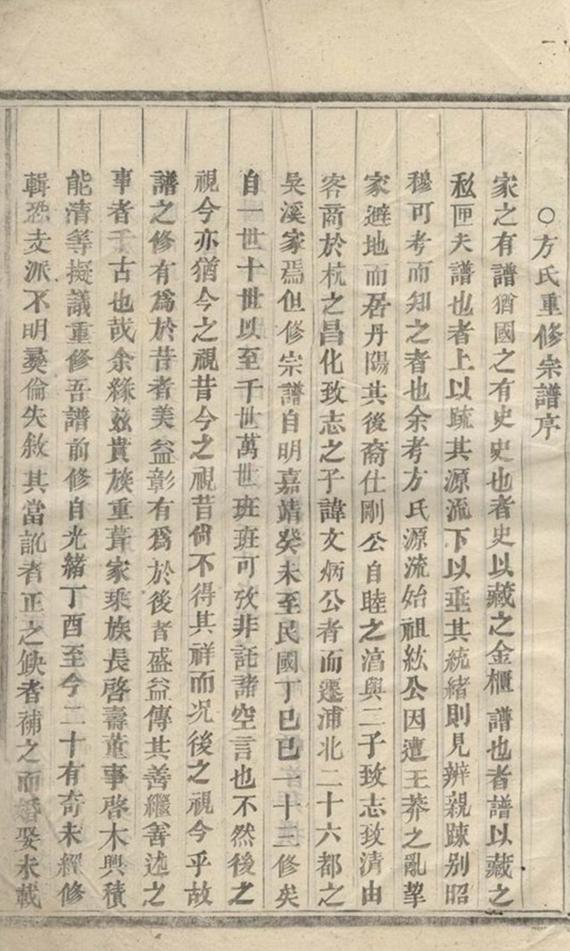 ○方氏重修宗譜序
家之有譜猶國之有史史也者史以藏之金櫃譜也者譜以藏之
私匣夫譜也者上以䟽其源流下以垂其統緒則見辨親踈别昭
穆可考而知之者也余考方氏源流始祖紘公因遭王莽之亂挈
家避地而居丹陽其後裔仕剛公自睦之淯與二子致志致清由
客商於杭之昌化致志之子諱文炳公者而遷浦北二十六都之
吳溪家焉但修宗譜自明嘉靖癸未至民國丁巳已一十三修矣
自一世十世以至千世萬世班班可攷非託諸空言也不然後之
視今亦猶今之視昔今之視昔尙不得其祥而况後之視今乎故
譜之修有爲於昔者美益彰有爲於後者盛益傳其善繼善述之
事者千古也哉余緣兹貴族重葺家乘族長啓壽董事啓木興積
能清等擬議重修吾譜前修自光緒丁酉至今二十有奇未經修
輯恐支派不明彛倫失敘其當訛者正之缺者補之而婚娶未載